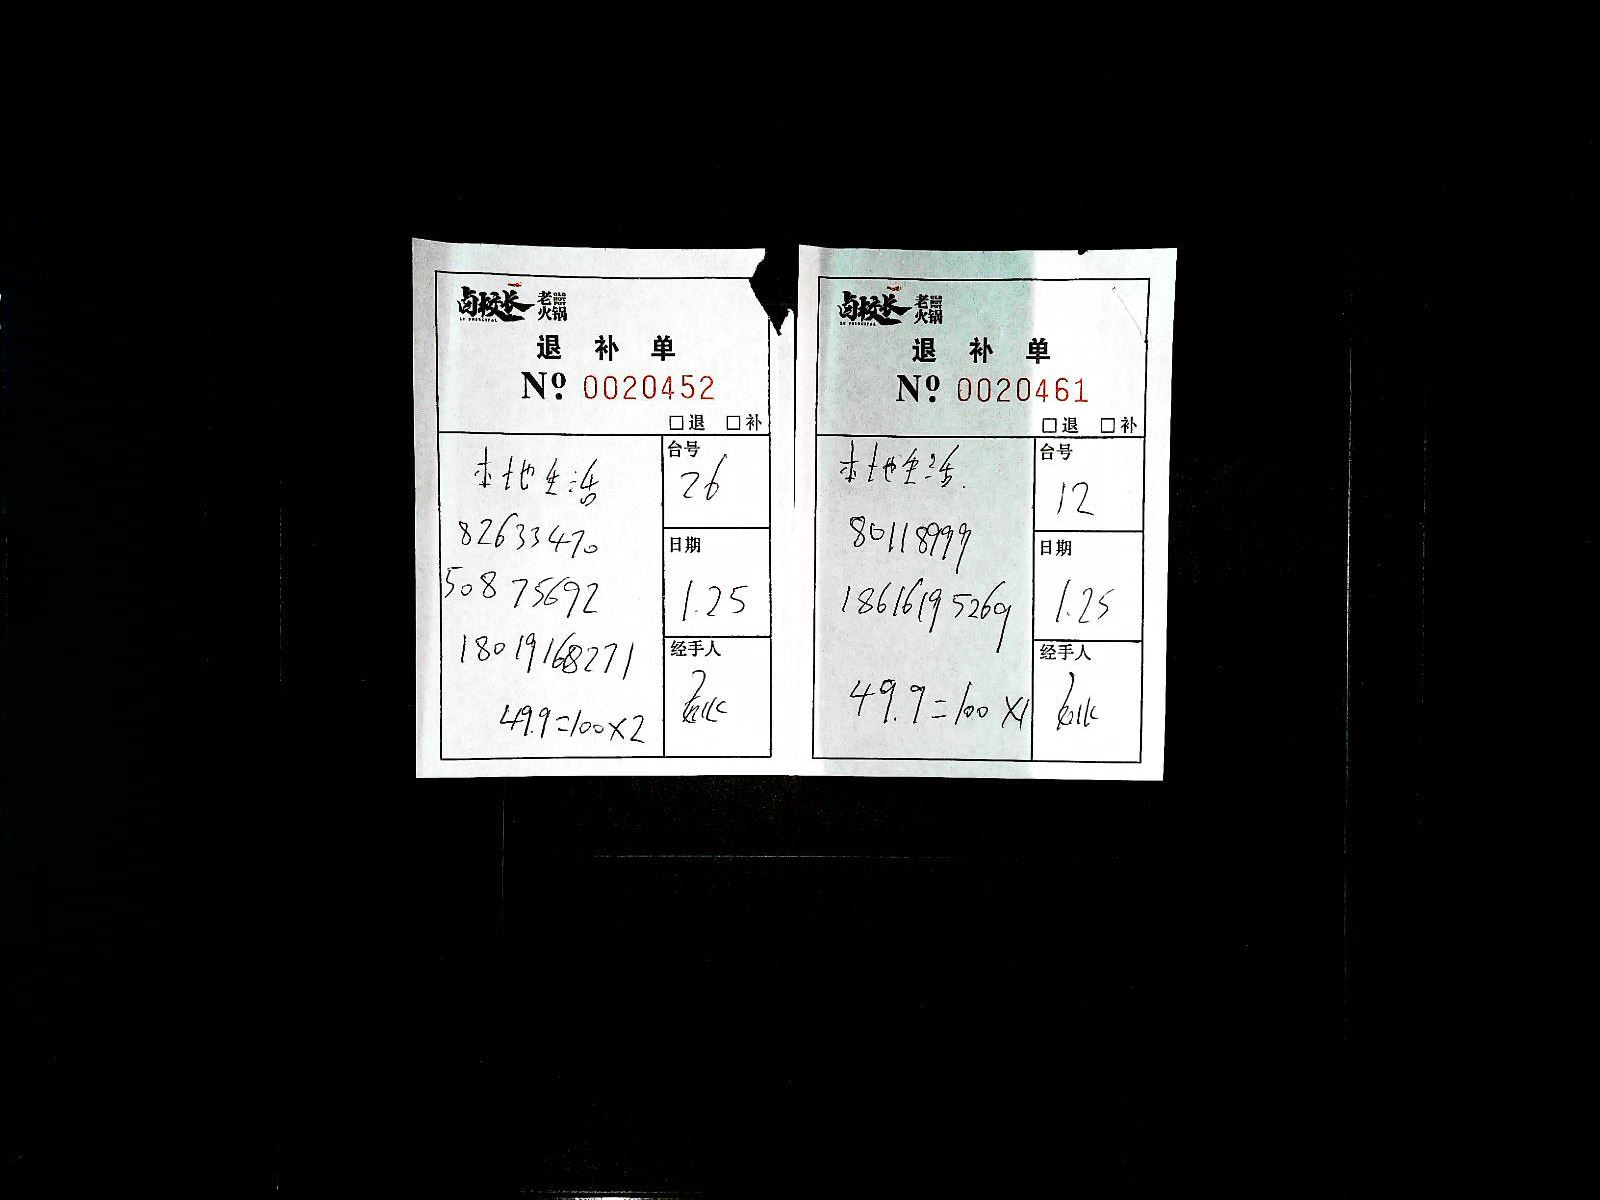 卤校长 老火锅
OLD HOT POT
LU PRINCIPAL
退 补 单
Nº 0020452
□退 □补
本地生活
82633470
50875692
18019168271
49.9=100×2
台号
26
日期
1.25
经手人
卤校长 老火锅
OLD HOT POT
LU PRINCIPAL
退 补 单
Nº 0020461
□退 □补
本地生活.
80118999
18616195269
49.9=100×1
台号
12
日期
1.25
经手人